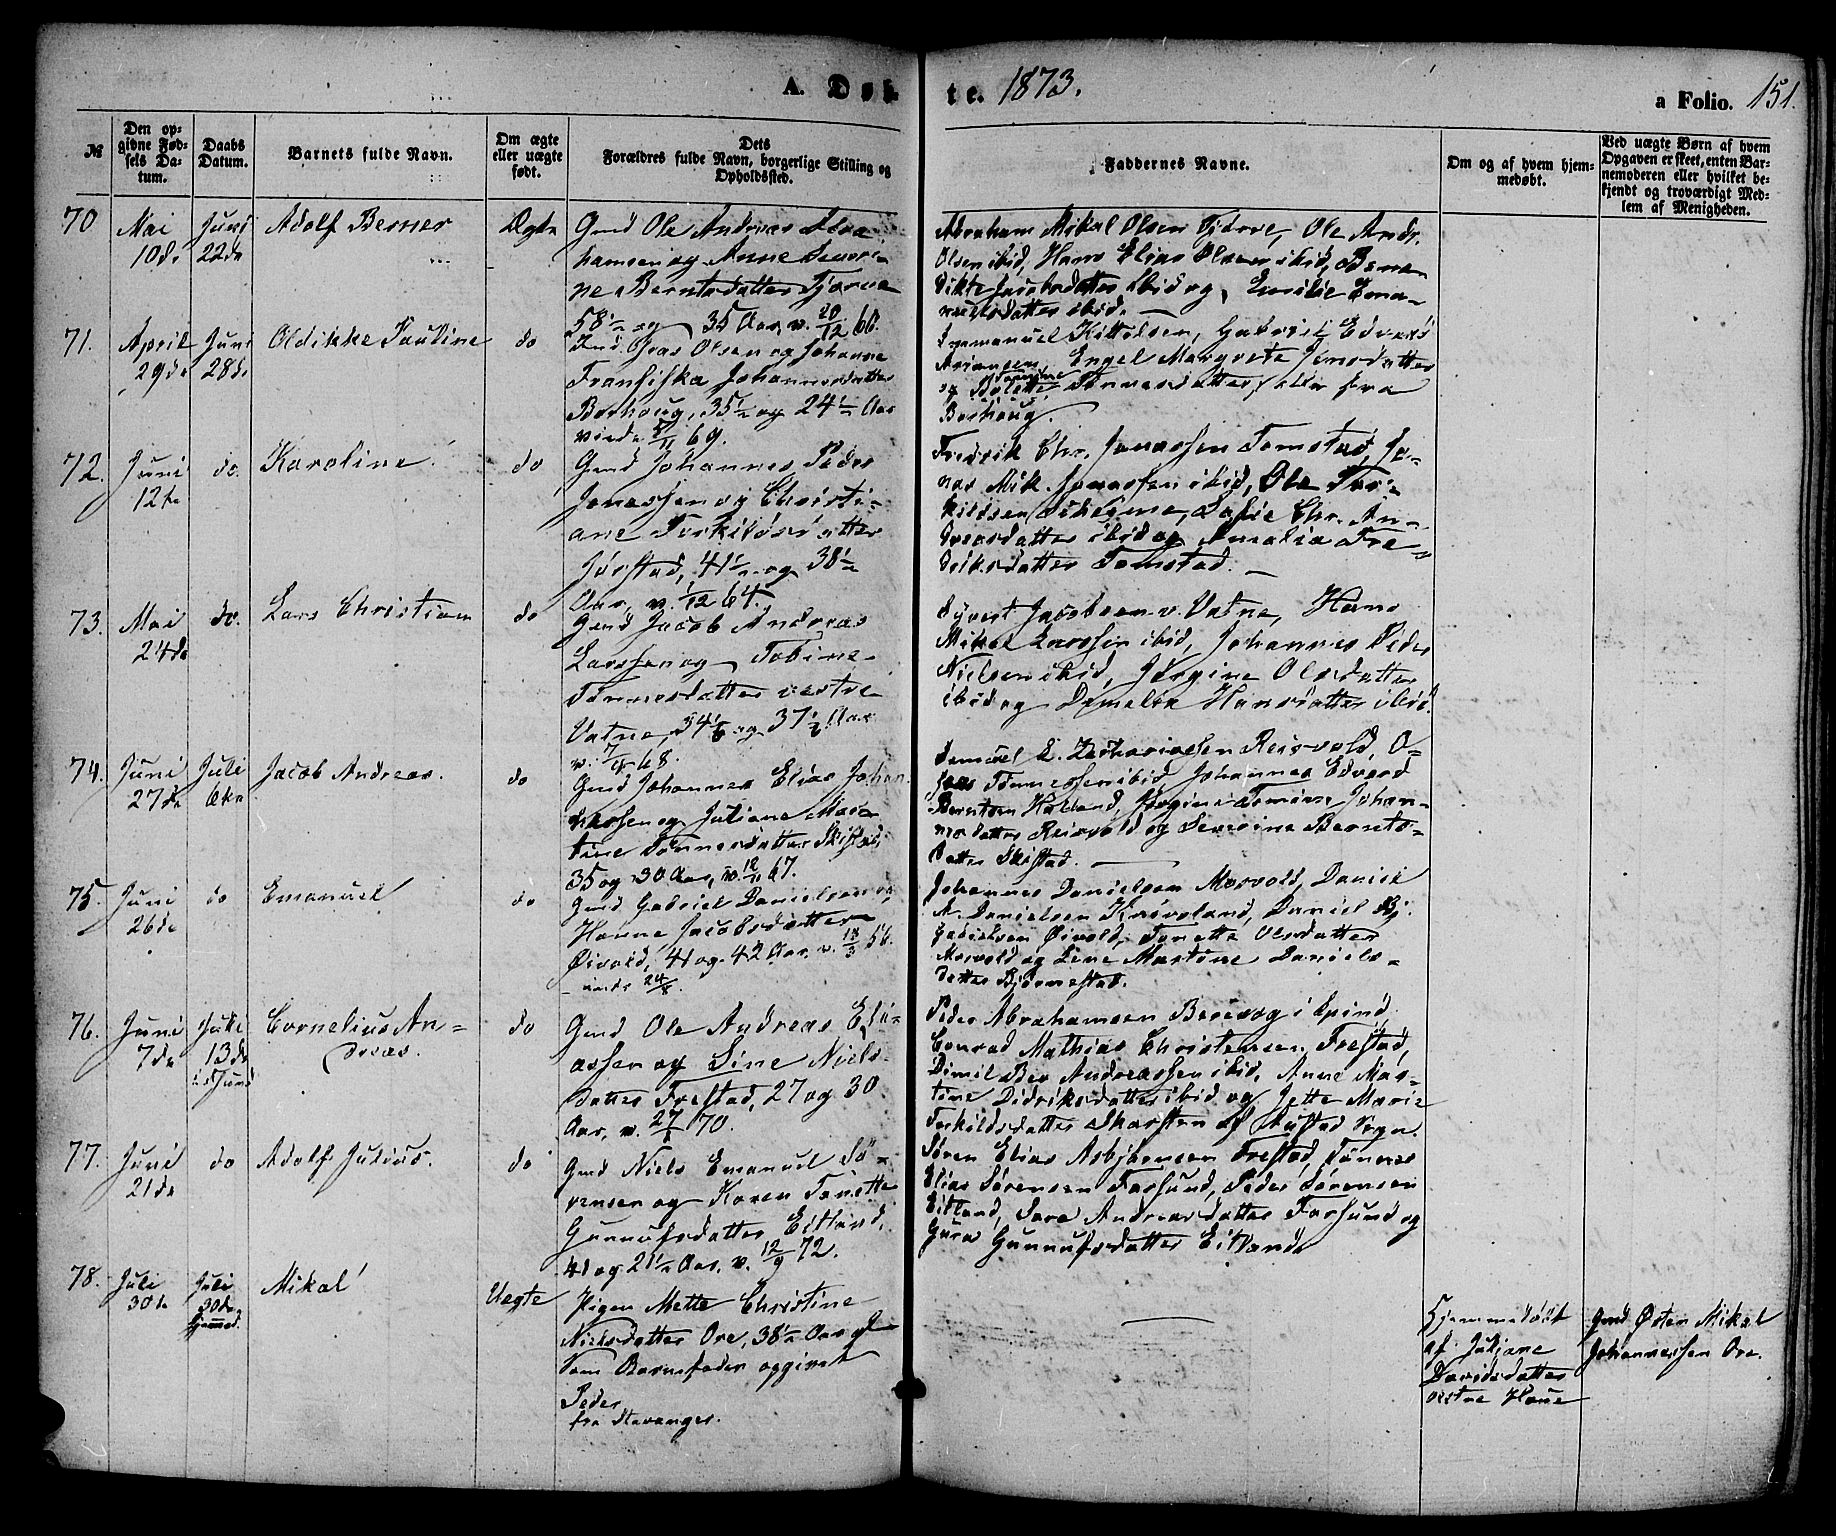 A. Døb
te. 1873.
a Folio. 151.
№
Den op-
givne Fød-
sels Da-
tum.
Daabs
Datum.
Barnets fulde Navn.
Om ægte
eller uægte
født.
Dets
Forældres fulde Navn, borgerlige Stilling og
Opholdssted.
Faddernes Navne.
Om og af hvem hjem-
medøbt.
Ved uægte Børn af hvem
Opgaven er skeet, enten Bar-
nemoderen eller hvilket be-
kjendt og troværdigt Med-
lem af Menigheden.
70
Mai
10de
Juni
22de
Adolf Berner
Ægte
Gmd Ole Andreas Abra-
hamsen og Anne Severi-
ne Berntsdatter Tjørve
58½ og 35 Aar, v. 20/12 60.
Abraham Mikal Olsen Tjørve, Ole Andr.
Olsen ibid, Hans Elias Olsen ibid, Bene-
dikte Jacobsdatter ibid og Emilie Ema-
nuelsdatter ibid.
71.
April
29de
Juni
28de
Oldikke Pauline
do
Ind. Gras Olsen og Johanne
Fransiska Johannesdatter
Borhoug, 35½ og 24½ Aar
69.
Emmanuel Kittelsen, Gabriel Edvard
Engel Margrete Jensdatter
og Bolette Tønnesdatter, alle fra
Borhoug
72.
Juni
12te
do.
Karoline
do
Gmd Johannes Peder
Jonassen og Christi-
ane Torkildsdatter
41½ og 38½
Aar, v. 1/12 64.
Fredrik Chr. Jonassen Tomstad, Jo-
nas Mik. Jonassen ibid, Ole Tor-
kildsen Sofie Chr. An-
dreasdatter ibid og Amalia Fre-
driksdatter Tomstad.
73.
Mai
24de
do.
Lars Christian
do
Gmd Jacob Andreas
Larssen og Tobine
Tønnesdatter vestre
Vatne, 34 og 37½ Aar
68.
Syvert Jacobsen v. Vatne, Hans
Mikal Larssen ibid, Johannes Peder
Nielsen ibid, Jørgine Olsdatter
ibid og Hansdatter ibid.
74.
Juni
27de
Juli
6te
Jacob Andreas.
do
Gmd Johannes Elias Johan-
nessen og Juliane Mar-
tine Tønnesdatter Skistad,
35 og 30 Aar, v. 67.
Samuel E. Zachariassen Reisvold, O-
laus Tønnessen ibid, Johannes Edvard
Berntsen Hølland, Jørgine Tomine Johan-
nesdatter Reisvold og Severine Bernts-
datter Skistad.
75.
Juni
26de
do
Emanuel
do
Gmd Gabriel Danielsen og
Hanne Jacobsdatter
Øivold, 41 og 42 Aar, v. 18/3 56.
Johannes Danielsen Mosvold, Daniel
A. Danielsen Daniel Bj.
Gabrielsen Øivold, Tonette Olsdatter
Mosvold og Lene Martine Daniels-
datter Bjørnestad.
76.
Juni
7de
Juli
13de
Cornelius An-
dreas.
do
Gmd Ole Andreas Eli-
assen og Sine Niels-
datter Frestad, 27 og 30
Aar, v. 70.
Peder Abrahamsen
Conrad Mathias Christensen Frestad,
Andreassen ibid, Anne Mar-
tine Didriksdatter ibid og Jette Marie
Torkildsdatter Skarsten af Austad Sogn.
77.
Juni
21de
do
Adolf Julius.
do
Gmd Niels Emanuel Sø-
rensen og Karen Tonette
Gunnufsdatter Eitland,
41 og 21½ Aar, v. 12/9 72.
Søren Elias Asbjørnsen Frestad, Tønnes
Elias Sørensen Farsund, Peder Sørensen
Eitland, Sara Andreasdatter Farsund og
Guro Gunnufsdatter Eitland.
78.
Juli
30te
Juli
30de
hjemmed.
Mikal
Uægte
Pigen Mette Christine
Nielsdatter Ore, 38½ Aar gl.
Som Barnefader opgivet
Peder
fra Stavanger.
Hjemmedøbt
af Juljane
Davidsdatter
vestre Haue
Gmd Østen Mikal
Johannessen Ore.